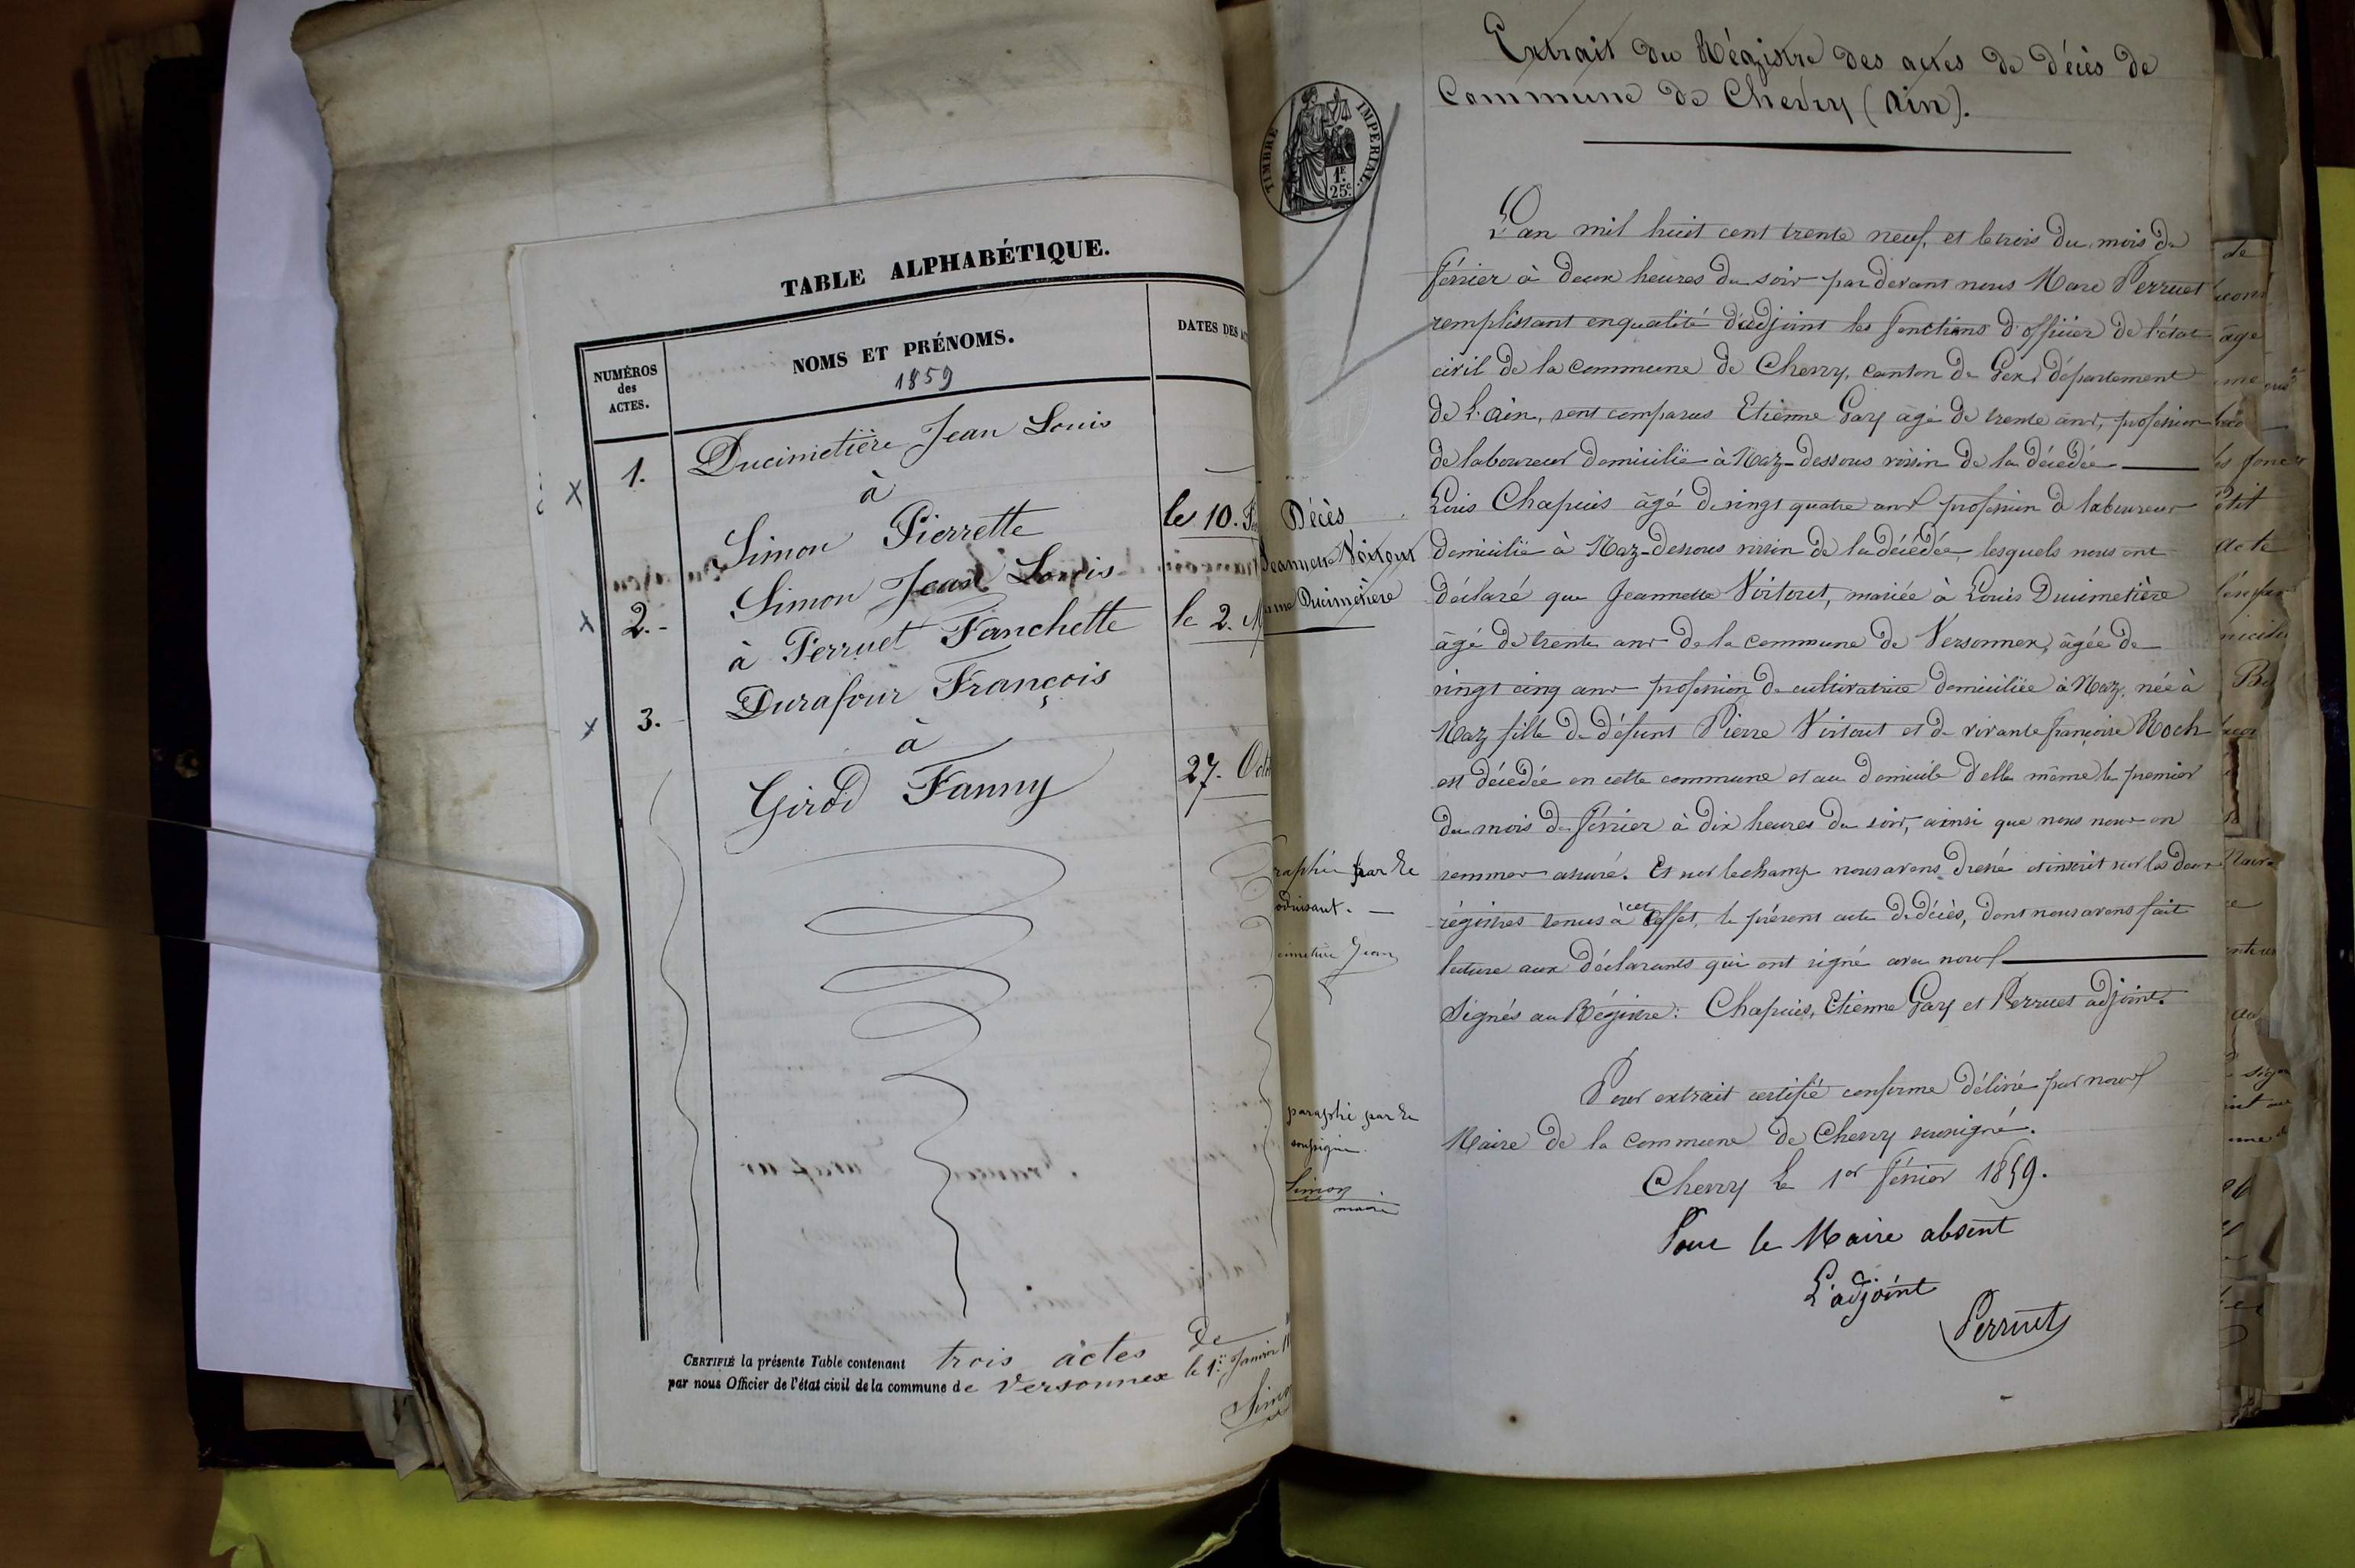 TABLE ALPHABÉTIQUE.
NUMÉROS
des
ACTES.
NOMS ET PRÉNOMS.
1859
DATES DES
1.
Ducimetière Jean Louis
à
Simon Pierrette
le 10.
2.-
Simon Jean Louis
à Perruet Fanchette
le 2.
3.
Durafour François
à
Girod Fanny
27.
CERTIFIÉ la présente Table contenant trois actes de
par nous Officier de l'état civil de la commune de Versonnex le 1er Janvier
Extrait du Régistre des actes de décès de
Commune de Chevry (Ain).
TIMBRE IMPERIAL.
1F
25c
L'an mil huit cent trente neuf, et le trois du mois de
février à deux heures du soir par devant nous Marc Perruet
remplissant en qualité d'adjoint les fonctions d'officier de l'état
civil de la commune de Chevry, canton de Gex, département
de l'Ain, sont comparus Etienne Gay âgé de trente ans, profession
de laboureur domicilié à Naz-dessous voisin de la décédée
Louis Chapuis âgé de vingt quatre ans profession de laboureur
domicilié à Naz-dessous voisin de la décédée, lesquels nous ont
déclaré que Jeannette Voitout, mariée à Louis Ducimetière
âgé de trente ans de la commune de Versonnex, âgée de
vingt cinq ans profession de cultivatrice domiciliée à Naz, née à
Naz fille de défunt Pierre Voitout et de vivante françoise Roch
est décédée en cette commune et au domicile d'elle même le premier
du mois de février à dix heures du soir, ainsi que nous nous en
sommes assuré. Et sur le champ nous avons dressé et inscrit sur les deux
régistres tenus à cet effet, le présent acte de décès, dont nous avons fait
lecture aux déclarants qui ont signé avec nous
Signés au Régistre: Chapuis, Etienne Gay et Perruet adjoint.
Pour extrait certifié conforme délivré par nous
Maire de la commune de Chevry soussigné.
Chevry le 1er février 1859.
Pour le Maire absent
L'adjoint
Perruet
Décès
Jeannette Voitout
Ducimetière
par le
Jean
paraphé par le
soussigné
Simon
maire